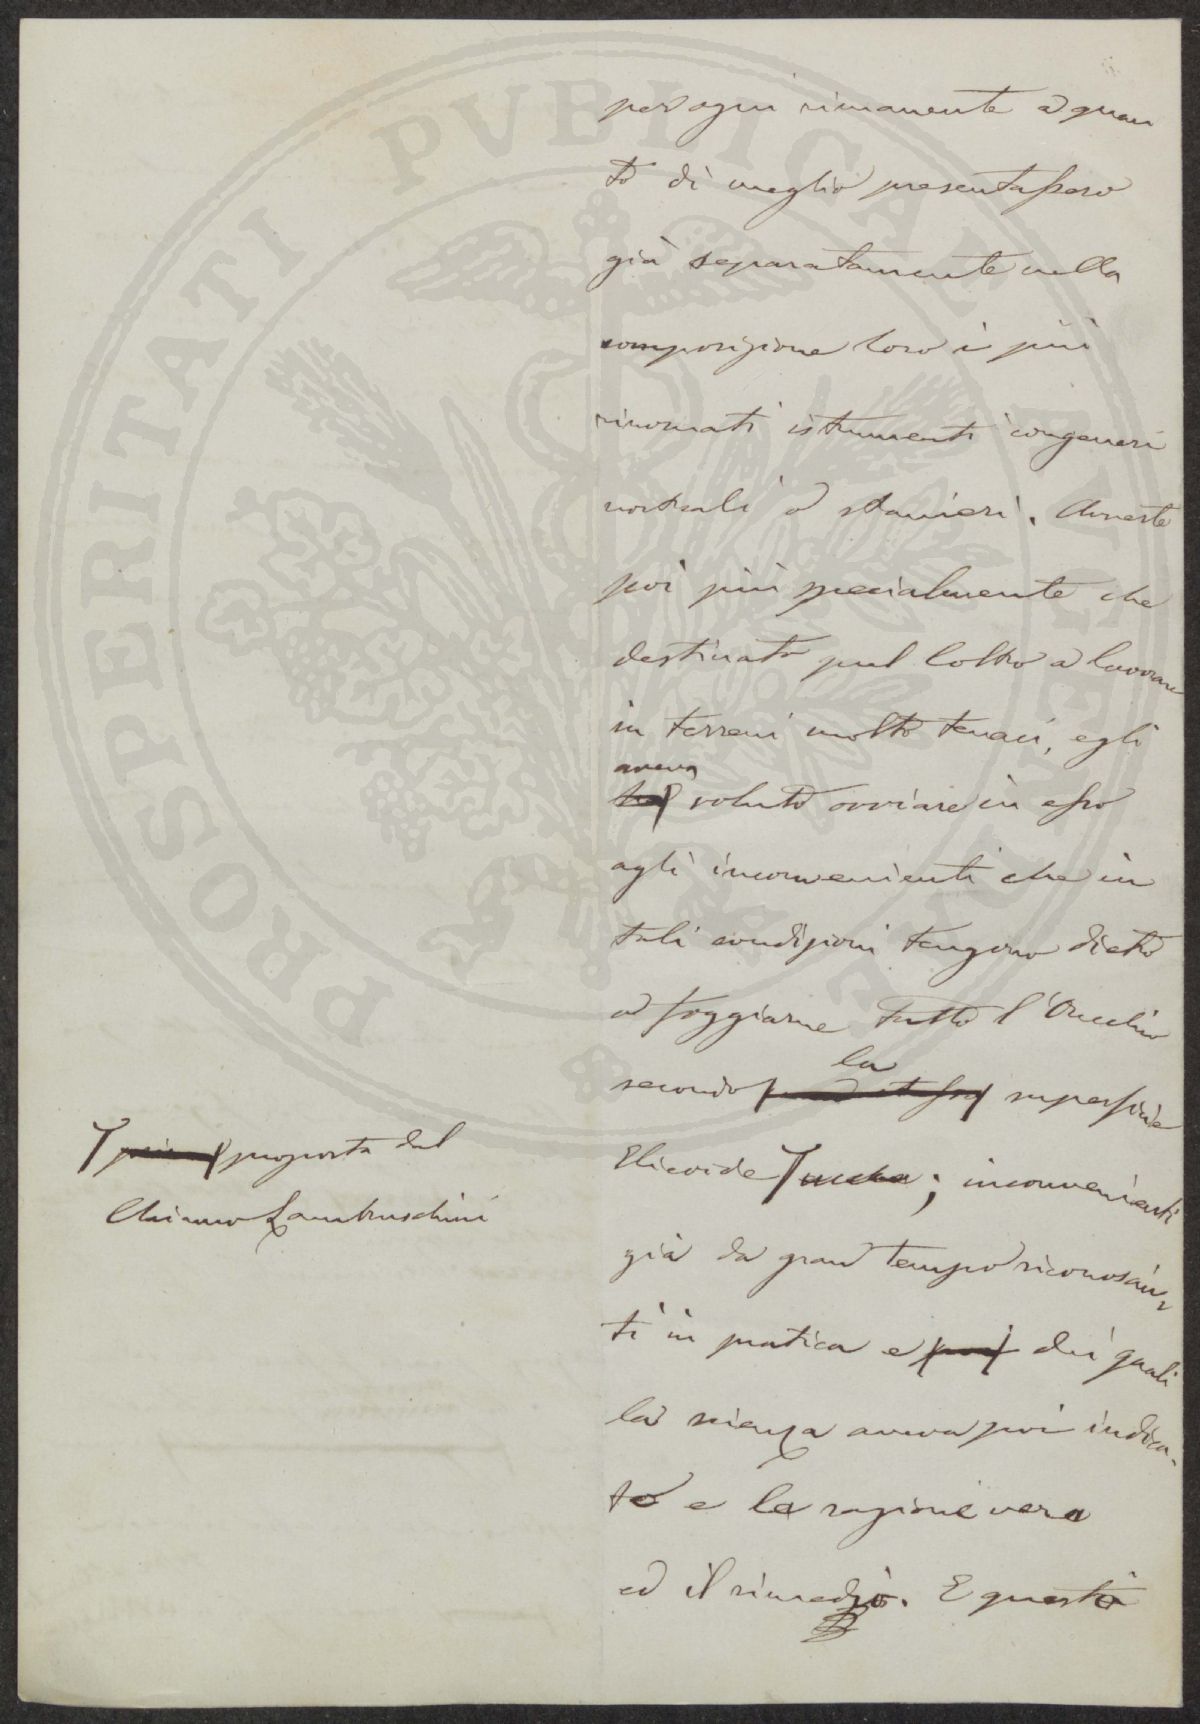 per ogni rimanente a quan
to di meglio presentassero
già separatamente nella
composizione loro i più
rinomati istrumenti congeneri
nostrali o stranieri. Avverte
poi più specialmente che
destinato pel coltro a lavorare
in terreni molto tenaci, egli
aveva
ha voluto ovviare in esso
agli inconvenienti che in
tali condizioni tengono dietro
a foggiarne tutto l'Orecchio
la
secondo superficie
Elicoide ; inconvenienti
proposta dal
Chiarmo Lambruschini
già da gran tempo riconosciu
ti in pratica e poi dei quali
la scienza aveva poi indica
to e la ragione vera
ed il rimedio. E questo
PROSPERITATI PVBLICAE AVGENDAE